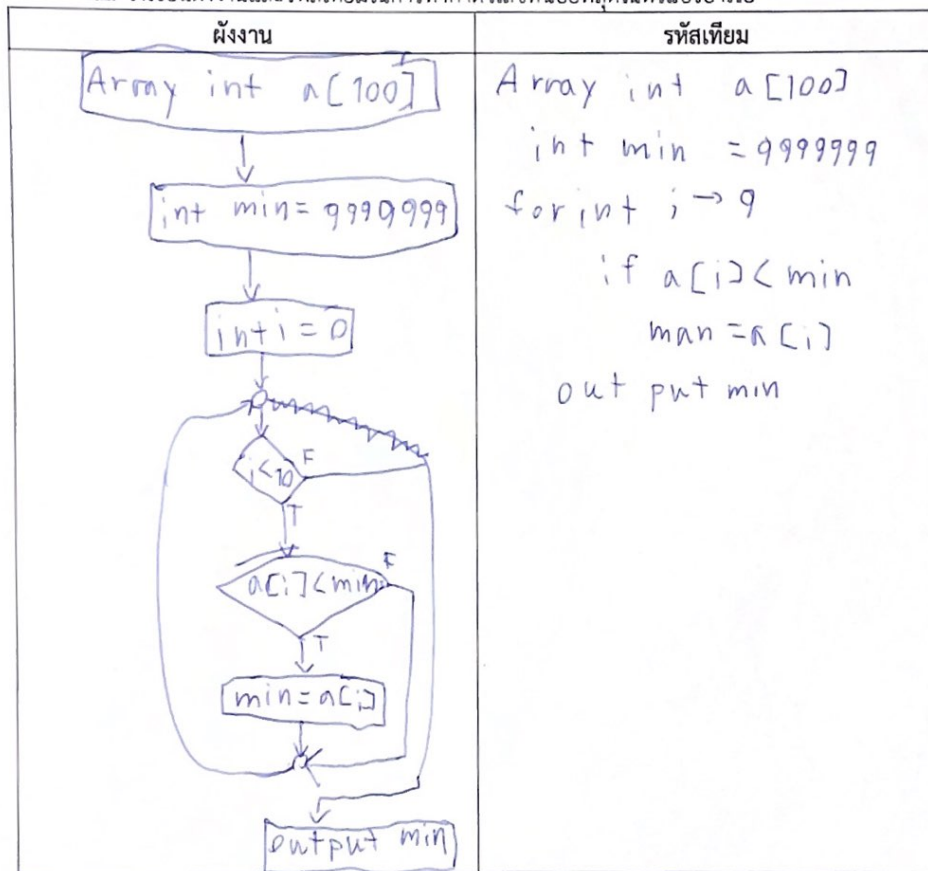 ผังงาน
รหัสเทียม
Array int a[100]
int min = 9999999
int i = 0
i<10
F
T
a[i]<min
F
T
min = a[i]
output min
Array int a[100]
int min = 9999999
for int i → 9
if a[i] < min
man = a[i]
out put min